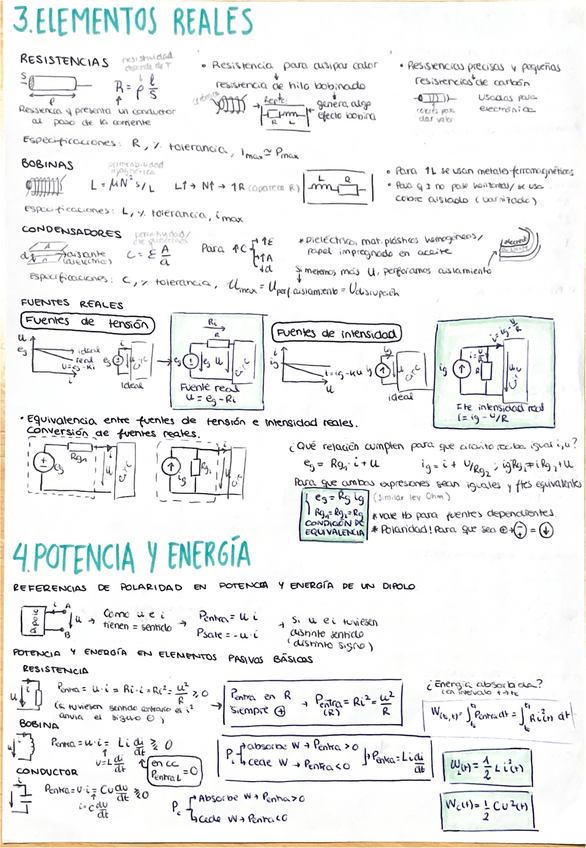 3. ELEMENTOS REALES
RESISTENCIAS
resistividad
depende de T
R = ρ l/S
S
l
Resistencia q presenta un conductor
al paso de la corriente
• Resistencia para disipar calor
resistencia de hilo bobinado
genera algo
efecto bobina
R L
• Resistencias precisas y pequeñas
resistencias de carbón
Usadas para
electrónica
Especificaciones: R, % tolerancia, Imax ≅ Pmax
BOBINAS
permeabilidad
magnética
L = μN²S/L L↑ → N↑ → ↑R (aparece R)
L R
• Para ↑L se usan metales ferromagnéticos
cobre aislado (barnizado)
Especificaciones: L, % tolerancia, imax
CONDENSADORES
permitividad/
C = ε A/d
Para ↑C
↑ε
↑A
↓d
• Dieléctrico, mat. plásticos homogéneos/
papel impregnado en aceite
Si metemos más U, perforamos aislamiento
Especificaciones: C, % tolerancia, Umax = Uperf.aislamiento = Udisrupción
FUENTES REALES
Fuentes de tensión
u
eg
ideal
real
u = eg - Ri
i
ideal
Ri
R
Fuente real
u = eg - Ri
Fuentes de intensidad
i
ig
i = ig - u/R
u
ideal
Fte intensidad real
i = ig - u/R
• Equivalencia entre fuentes de tensión e intensidad reales.
Conversión de fuentes reales.
Rg1
eg
ig
Rg2
¿Qué relación cumplen para que circuito reciba igual i, u?
eg = Rg1·i + u ig = i + u/Rg2 ; igRg2 = iRg2 + u
Para que ambas expresiones sean iguales y ftes equivalentes
eg = Rg ig
Rg1 = Rg2 = Rg
CONDICIÓN DE
EQUIVALENCIA
(Similar ley Ohm)
* Vale tb para fuentes dependientes
* Polaridad! Para que sea
4. POTENCIA Y ENERGÍA
REFERENCIAS DE POLARIDAD EN POTENCIA Y ENERGÍA DE UN DIPOLO
i A
u
B
→ Como u e i
tienen = sentido
→ Pentra = u·i
Psale = -u·i
→ Si u e i tuviesen
distinto sentido
(distinto signo)
POTENCIA Y ENERGÍA EN ELEMENTOS PASIVOS BÁSICOS
RESISTENCIA
Pentra = u·i = Ri·i = Ri² = u²/R ≥ 0
(si tuviesen sentido contrario el i²
anula el signo ⊖)
Pentra en R
siempre ⊕
→ Pentra = Ri² = u²/R
(R)
¿Energía absorbida?
W(t0,t) = ∫ Pentra dt = ∫ Ri²(t) dt
BOBINA
Pentra = u·i = Li di/dt ≷ 0
u = L di/dt
en CC
Pentra L = 0
absorbe W → Pentra > 0
cede W → Pentra < 0
Pentra = Li di/dt
WL(t) = 1/2 L i²(t)
CONDUCTOR
Pentra = u·i = Cu du/dt ≷ 0
i = C du/dt
Pc
Absorbe W → Pentra > 0
Cede W → Pentra < 0
Wc(t) = 1/2 C u²(t)